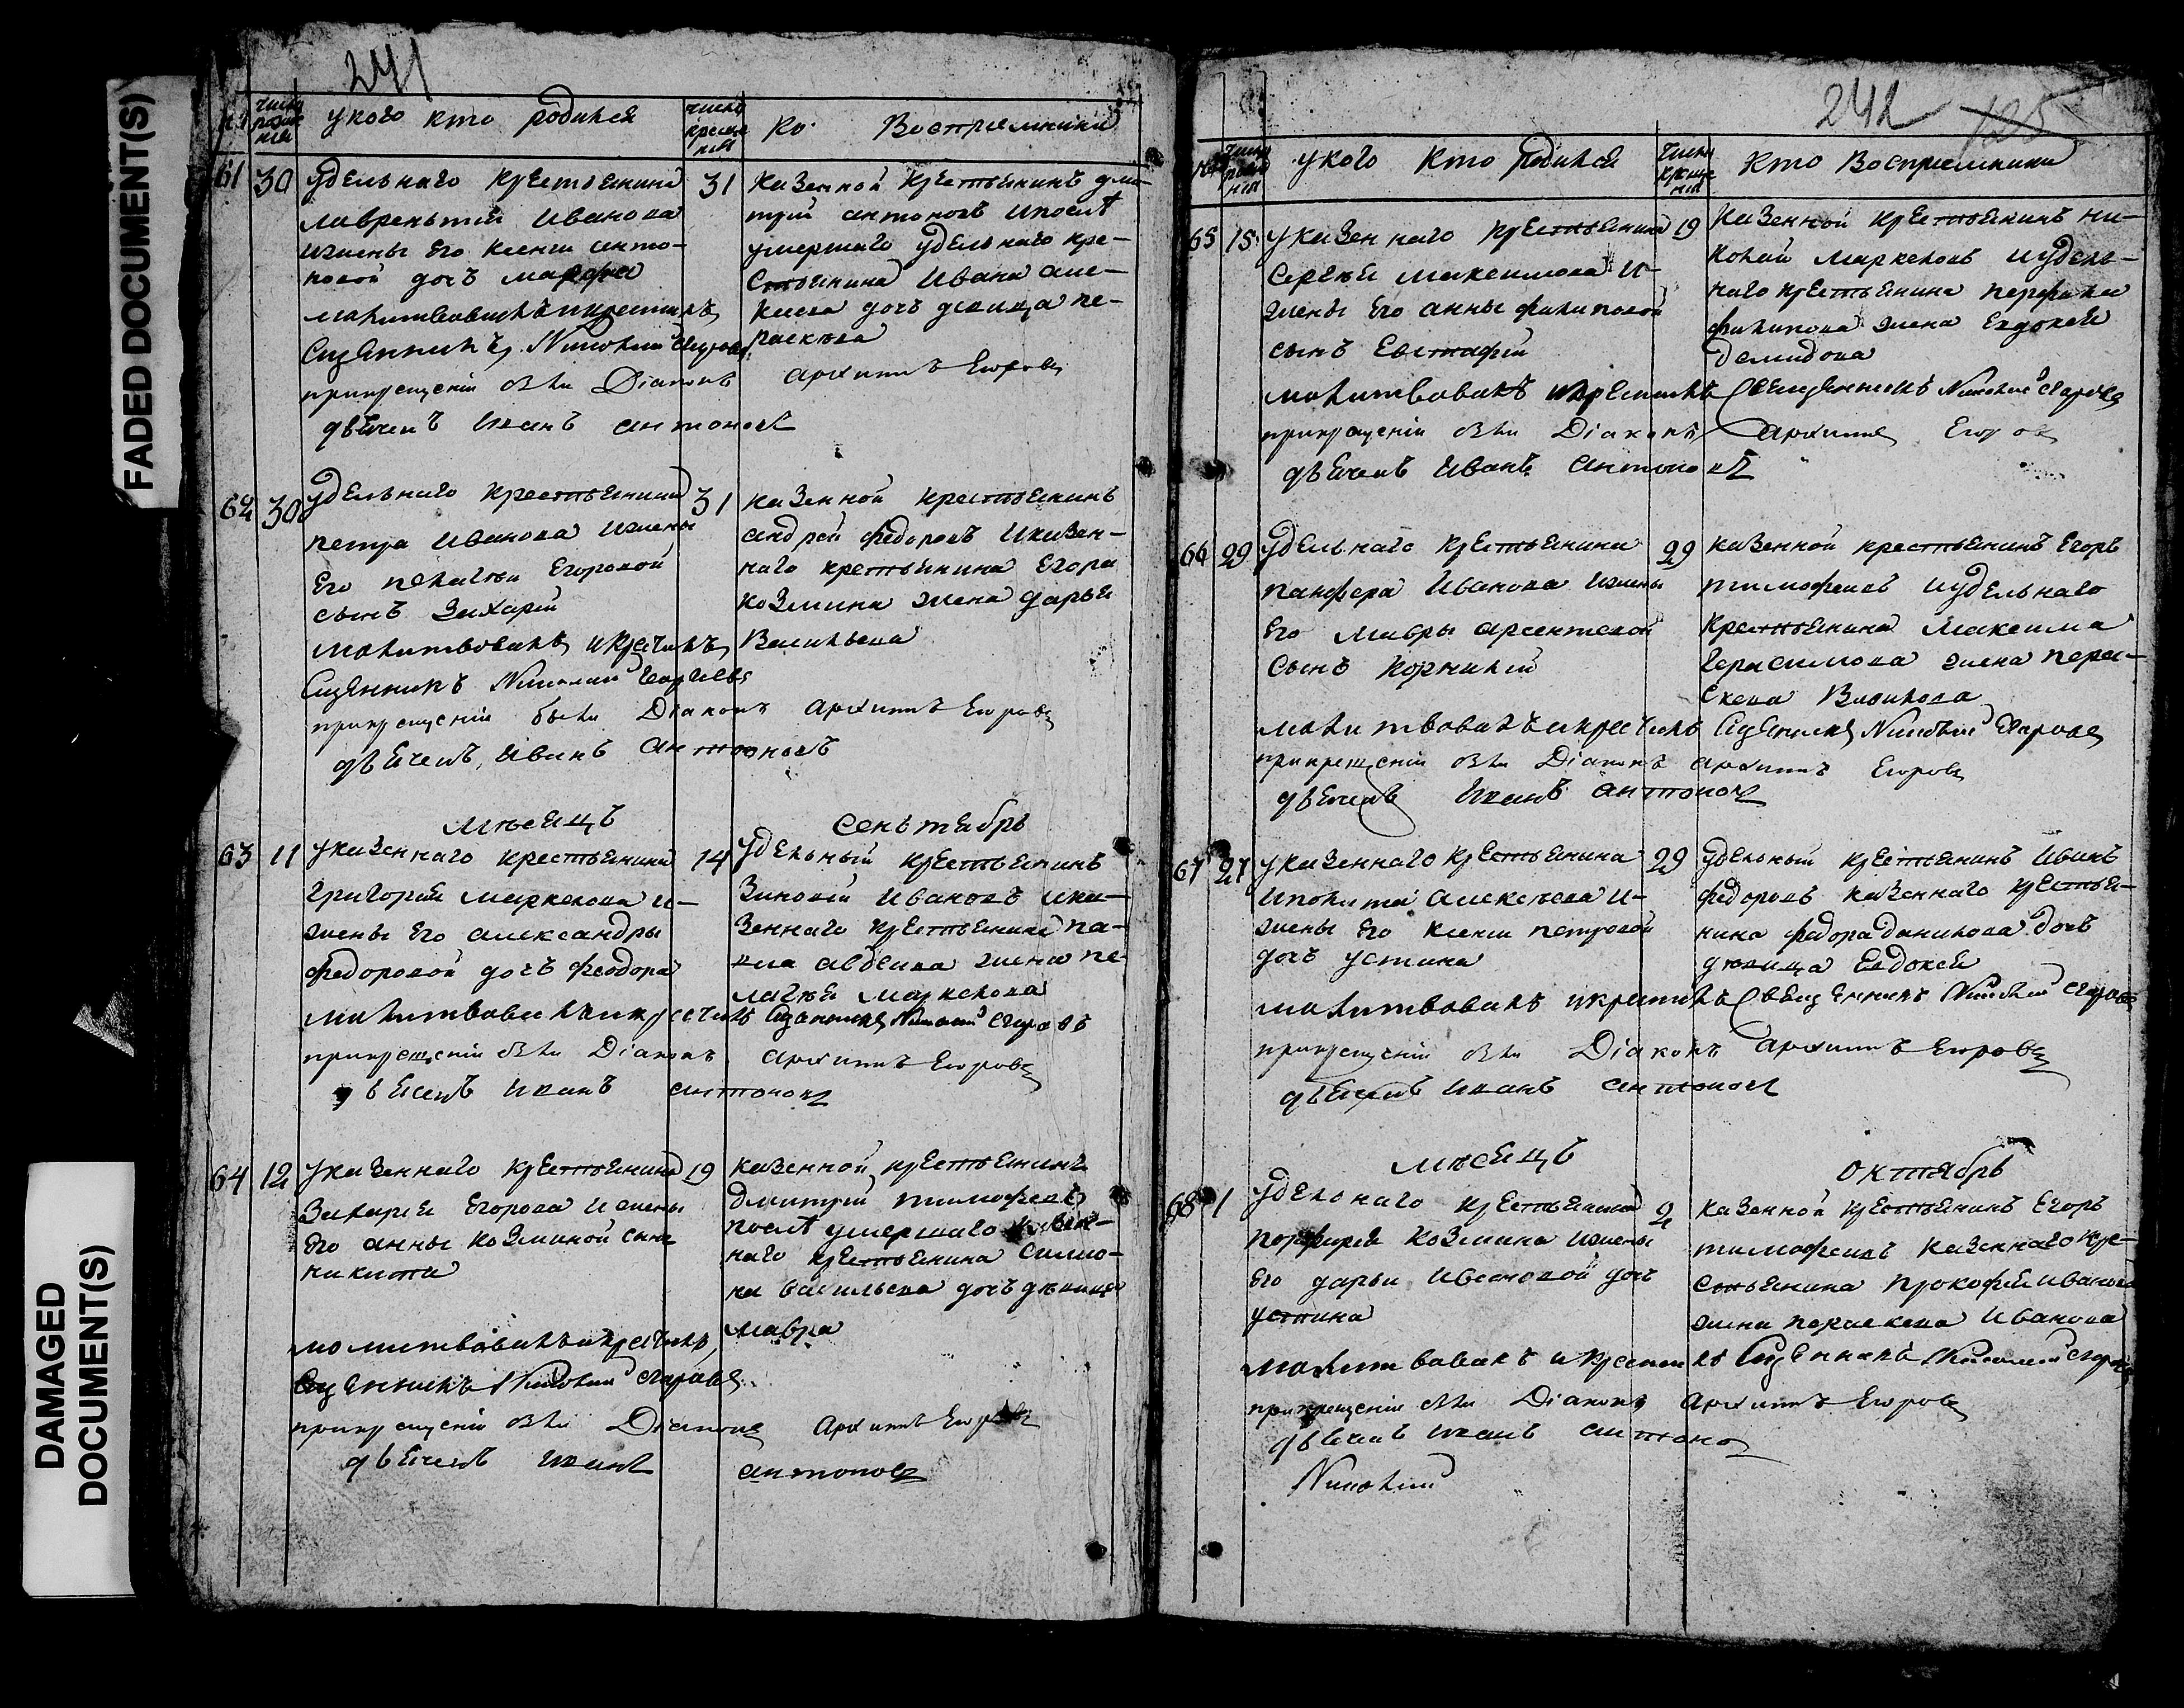 FADED DOCUMENT(S)
DAMAGED
DOCUMENT(S)
241
число
у кого кто родился
число
Восприемники
61 30 удельнаго крестьянина 31
Лаврентия Иванова
и жены его Ксении Анто-
новой дочь Марфа
молитвовалъ и крестилъ
Священникъ Николай
при крещении были Diаконъ
дьячекъ Иванъ Антоновъ
казенной крестьянинъ Дми-
трий Антоновъ и после
умершаго удельнаго кре-
стьянина Ивана Алек-
сиева дочь девица Па-
раскева
Архиппъ Егоровъ
62 30 удельнаго крестьянина 31
Петра Иванова и жены
его Пелагеи Егоровой
сынъ Захарий
молитвовалъ и крестилъ
Священникъ Николай
при крещении были Diаконъ Архиппъ Егоровъ
дьячекъ Иванъ Антоновъ
казенной крестьянинъ
Андрей Федоровъ и казен-
наго крестьянина Егора
Козмина жена Дарья
Васильева
месяцъ сеньтябрь
63 11 у казеннаго крестьянина 14
Григория Маркелова и
жены его Александры
Федоровой дочь Феодора
молитвовалъ и крестилъ Священникъ Николай
при крещении были Diаконъ Архиппъ Егоровъ
дьячекъ Иванъ Антоновъ
удельный крестьянинъ
Зиновий Ивановъ и ка-
зеннаго крестьянина Па-
вла Авдеива жена Пе-
лагея Маркелова
64 12 у казеннаго крестьянина 19
Захария Егорова и жены
его Анны Козминой сынъ
Никита
молитвовалъ и крестилъ
Священникъ Николай
при крещении были Diаконъ Архиппъ Егоровъ
дьячекъ Иванъ Антоновъ
казенной крестьянинъ
Дмитрий Тимофеевъ
после умершаго казен-
наго крестьянина Симио-
на Васильева дочь девица
Мавра
242 125
число
у кого кто родился
число
кто Восприемники
65 15 у казеннаго крестьянина 19
Сергея Максимова и
жены его Анны Филиповой
сынъ Евстафий
молитвовалъ и крестилъ Священникъ Николай
при крещении были Diаконъ Архиппъ Егоровъ
дьячекъ Иванъ Антоновъ
казенной крестьянинъ Ни-
колай Маркеловъ и удель-
наго крестьянина Перфила
Филипова жена Евдокея
Демидова
66 29 удельнаго крестьянина 29
Панфера Иванова и жены
его Мавры Арсентевой
сынъ Корнилий
молитвовалъ и крестилъ Священникъ Николай
при крещении были Diаконъ Архиппъ Егоровъ
дьячекъ Иванъ Антоновъ
казенной крестьянинъ Егоръ
Тимофеевъ и удельнаго
крестьянина Максима
Герасимова жена Парас-
кева
67 27 у казеннаго крестьянина 29
Иполита Алексеева и
жены его Ксении Петровой
дочь Устина
молитвовалъ и крестилъ Священникъ Николай
при крещении были Diаконъ Архиппъ Егоровъ
дьячекъ Иванъ Антоновъ
удельный крестьянинъ Иванъ
Федоровъ казеннаго крестья-
нина Федора Данилова дочь
девица Евдокея
месяцъ октябрь
68 1 удельнаго крестьянина 2
Порфирия Козмина и жены
его Дарьи Ивановой дочь
Устина
молитвовалъ и крестилъ Священникъ Николай
при крещении были Diаконъ Архиппъ Егоровъ
дьячекъ Иванъ Антоновъ
Николай
казенной крестьянинъ Егоръ
Тимофеевъ казеннаго кре-
стьянина Прокофия Иванова
жена Параскева Иванова